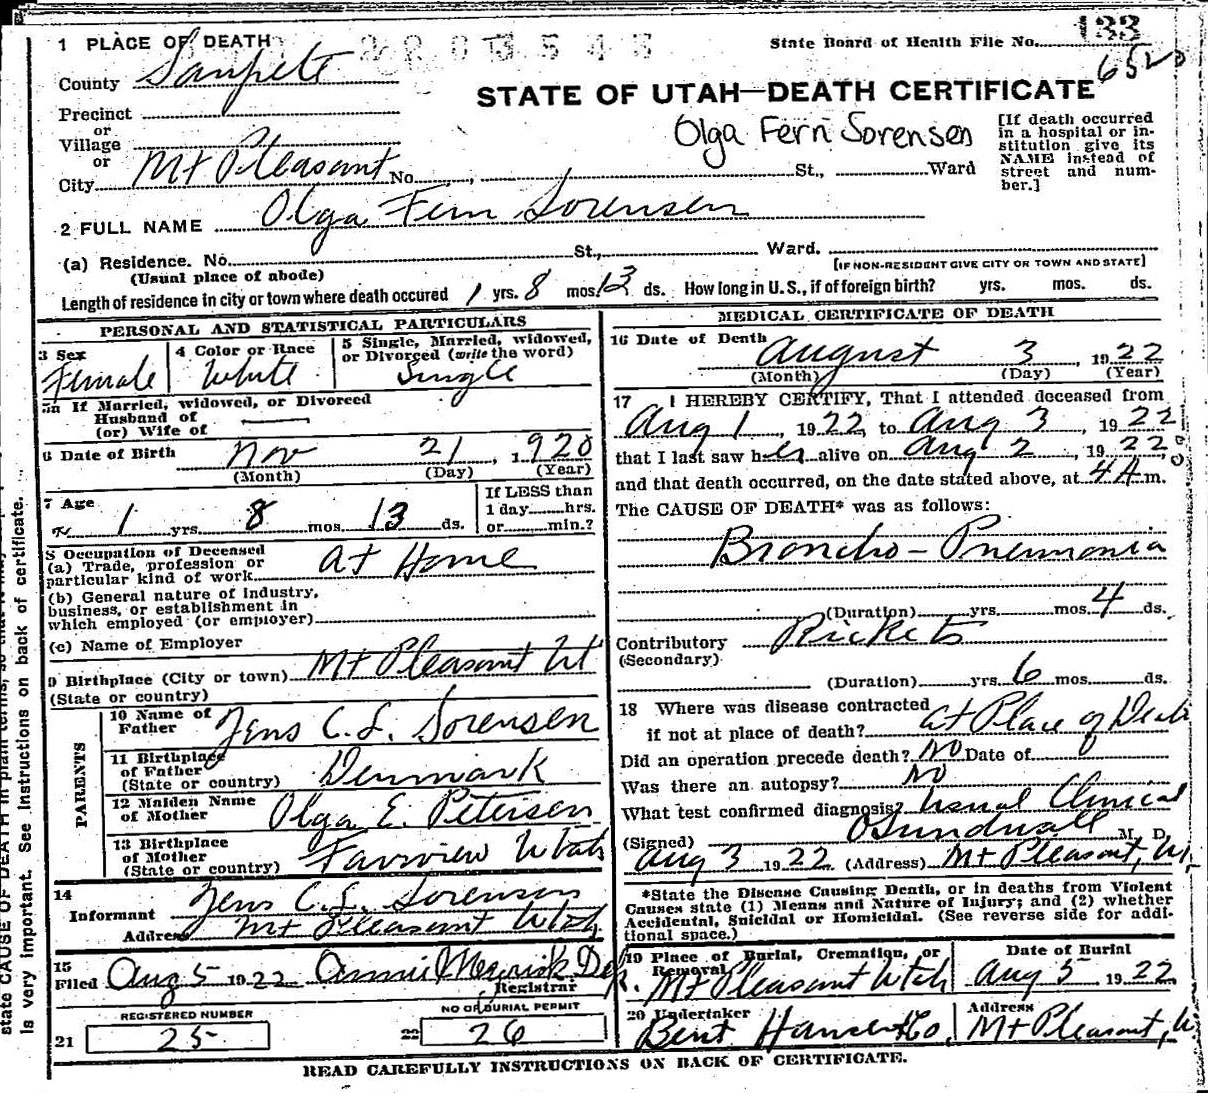 1 PLACE OF DEATH
State Board of Health File No. 133
6520
County Sanpete
STATE OF UTAH—DEATH CERTIFICATE
Precinct
or
Village
or
City Mt Pleasant No. , St., Ward
Olga Fern Sorensen
[If death occurred in a hospital or institution give its NAME instead of street and number.]
2 FULL NAME Olga Fern Sorensen
(a) Residence. No. St., Ward.
(Usual place of abode)
[IF NON-RESIDENT GIVE CITY OR TOWN AND STATE]
Length of residence in city or town where death occured 1 yrs. 8 mos. 13 ds. How long in U. S., if of foreign birth? yrs. mos. ds.
PERSONAL AND STATISTICAL PARTICULARS
3 Sex
Female
4 Color or Race
White
5 Single, Married, widowed, or Divorced (write the word)
Single
5a If Married, widowed, or Divorced
Husband of
(or) Wife of
6 Date of Birth Nov 21, 1920
(Month) (Day) (Year)
7 Age
1 yrs. 8 mos. 13 ds.
If LESS than
1 day hrs.
or min.?
8 Occupation of Deceased
(a) Trade, profession or
particular kind of work At Home
(b) General nature of Industry,
business, or establishment in
which employed (or employer)
(c) Name of Employer
9 Birthplace (City or town) Mt Pleasant Ut
(State or country)
PARENTS
10 Name of
Father Jens C. L. Sorensen
11 Birthplace
of Father
(State or country) Denmark
12 Maiden Name
of Mother Olga E. Petersen
13 Birthplace
of Mother
(State or country) Fairview Utah
14
Informant Jens C. L. Sorensen
Address Mt Pleasant Utah
15
Filed Aug 5 1922 Dep.
Registrar
REGISTERED NUMBER
21 25
NO OF BURIAL PERMIT
22 26
MEDICAL CERTIFICATE OF DEATH
16 Date of Death August 3, 1922
(Month) (Day) (Year)
17 I HEREBY CERTIFY, That I attended deceased from
Aug 1, 1922, to Aug 3, 1922
that I last saw her alive on Aug 2, 1922,
and that death occurred, on the date stated above, at 4 A m.
The CAUSE OF DEATH* was as follows:
Broncho-Pnemonia
(Duration) yrs. mos. 4 ds.
Contributory Rickets
(Secondary)
(Duration) yrs. 6 mos. ds.
18 Where was disease contracted
if not at place of death? At Place of Death
Did an operation precede death? No Date of
Was there an autopsy? No
What test confirmed diagnosis? Usual Clinical
(Signed) O Sundwall M. D.
Aug 3 1922 (Address) Mt Pleasant, Ut.
*State the Disease Causing Death, or in deaths from Violent
Causes state (1) Means and Nature of Injury; and (2) whether
Accidental, Suicidal or Homicidal. (See reverse side for addi-
tional space.)
19 Place of Burial, Cremation, or
Removal Mt Pleasant Utah
Date of Burial
Aug 5 1922
20 Undertaker
Bent Hansen Co.
Address
Mt Pleasant, U
READ CAREFULLY INSTRUCTIONS ON BACK OF CERTIFICATE.
state CAUSE OF DEATH in plain terms, so that
is very important. See instructions on back of certificate.